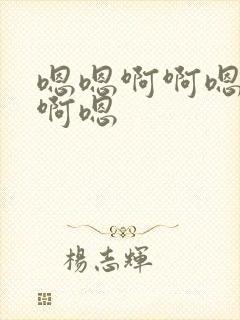 嗯嗯啊啊嗯
啊嗯
楊志輝